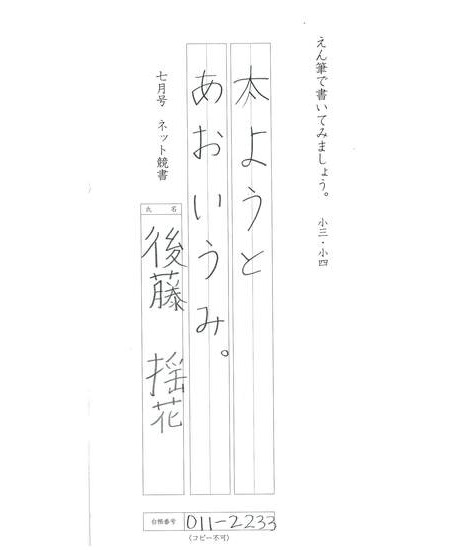 えん筆で書いてみましょう。　小三・小四
太ようと
あおいうみ。
七月号　ネット競書
氏名
後藤　揺花
台帳番号 011-2233
(コピー不可)